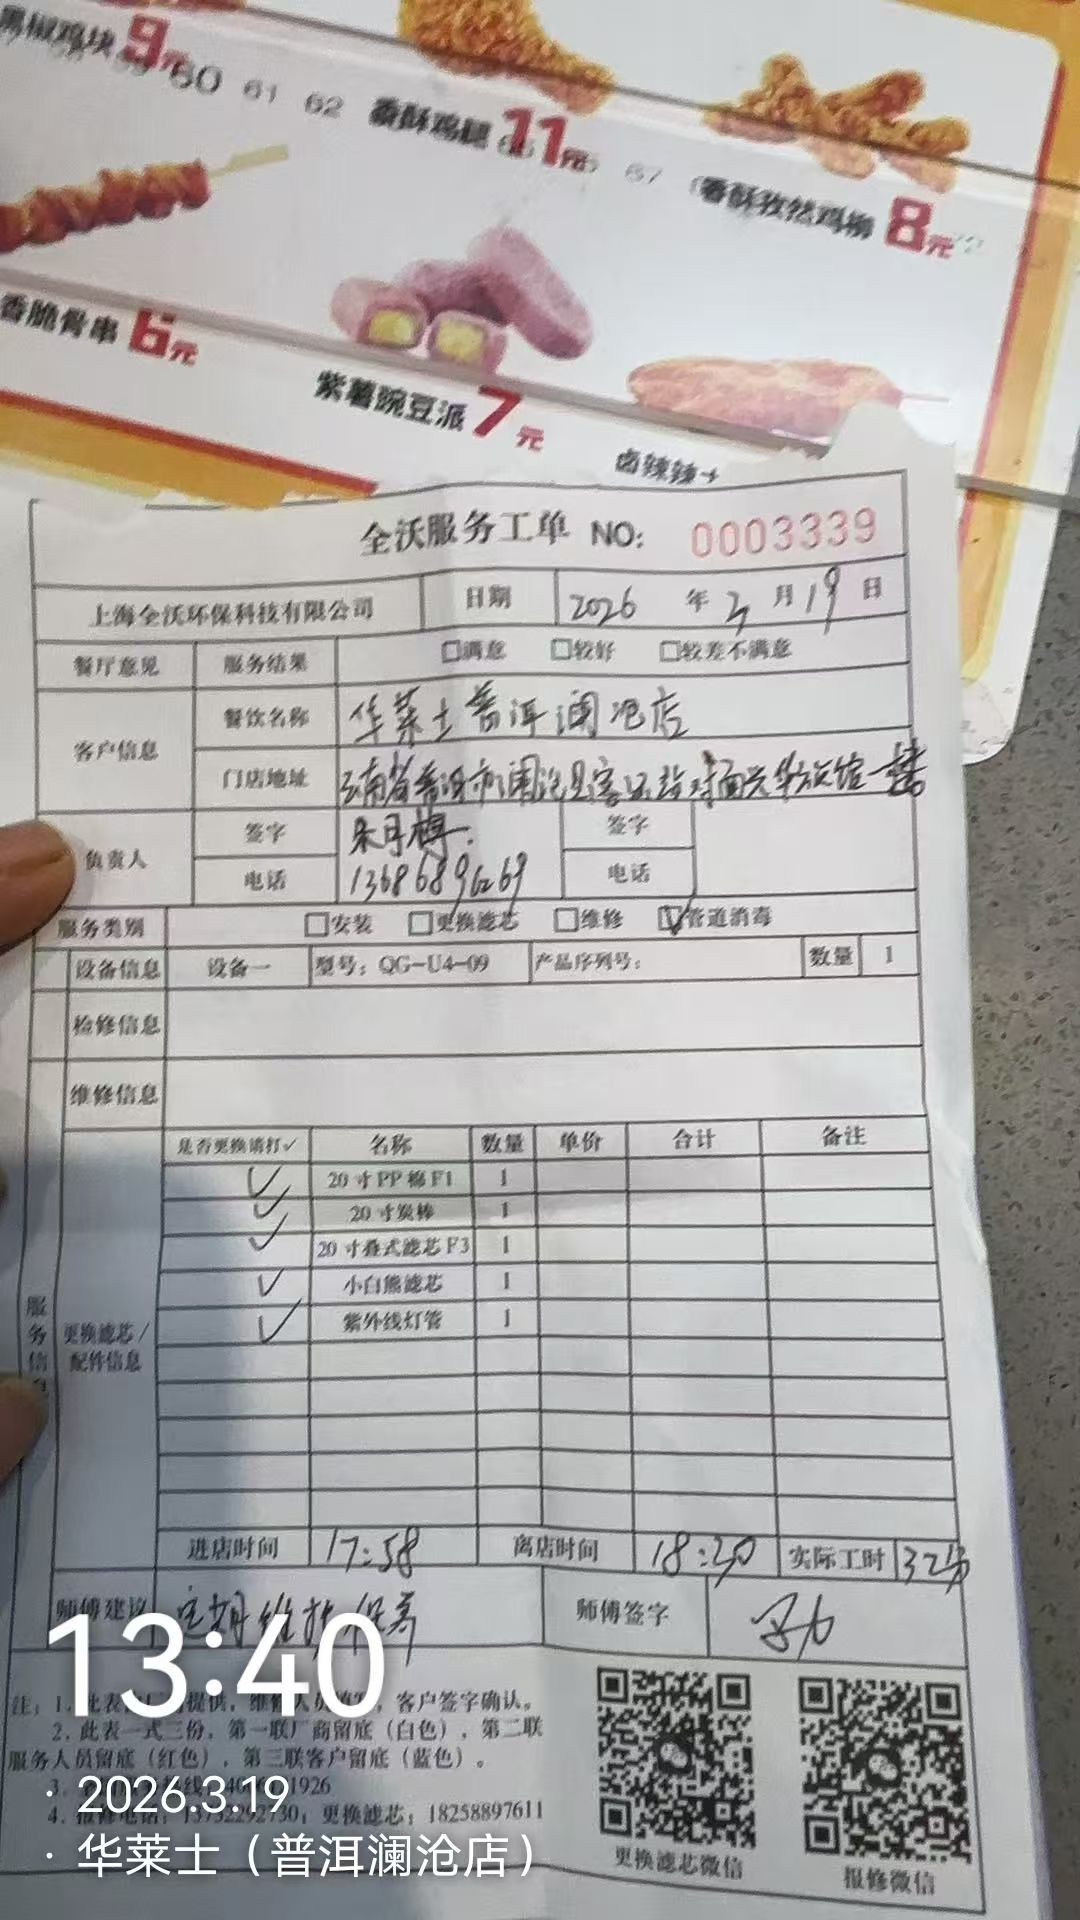 黑椒鸡块 9元
60 61 62
香酥鸡腿 11元
67
香酥孜然鸡柳 8元
香脆骨串 6元
紫薯豌豆派 7元
卤辣辣
全沃服务工单 NO: 0003339
上海全沃环保科技有限公司 日期 2026 年 3 月 19 日
餐厅意见 服务结果 □满意 □较好 □较差不满意
客户信息 餐饮名称 华莱士普洱澜沧店
门店地址 云南省普洱市澜沧县客运站对面兴华旅馆一楼
负责人 签字 朱月梅 签字
电话 13686896269 电话
服务类别 □安装 □更换滤芯 □维修 ☑管道消毒
设备信息 设备一 型号：QG-U4-09 产品序列号： 数量 1
检修信息
维修信息
服务信
更换滤芯/配件信息
是否更换请打✓ 名称 数量 单价 合计 备注
✓ 20寸PP棉F1 1
✓ 20寸炭棒 1
✓ 20寸叠式滤芯F3 1
✓ 小白熊滤芯 1
✓ 紫外线灯管 1
进店时间 17:58 离店时间 18:30 实际工时 32分
师傅建议 定期维护保养 师傅签字
13:40
注：1. 此表 提供，维修人员填写，客户签字确认。
2. 此表一式三份，第一联厂商留底（白色），第二联
服务人员留底（红色），第三联客户留底（蓝色）。
3. 1926
4. 报修电话：13732292730；更换滤芯：18258897611
· 2026.3.19
· 华莱士（普洱澜沧店）
更换滤芯微信
报修微信